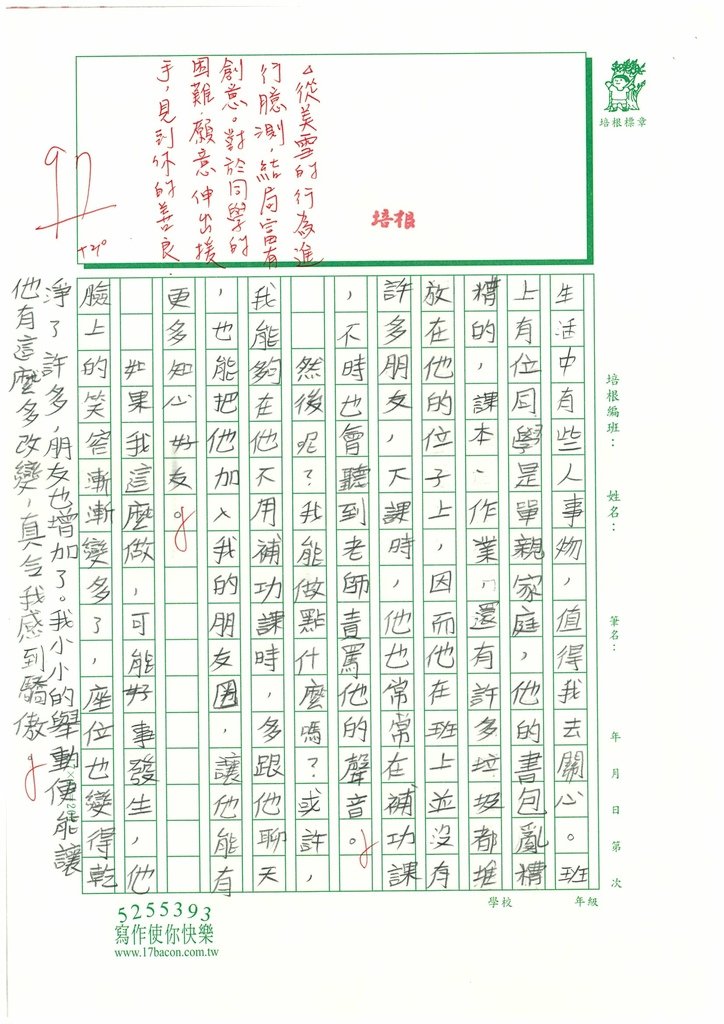 培根標章
培根編班：　姓名：　筆名：　年　月　日　第　次
學校　年級
培根
△從美雪的行為進
行臆測，結局富有
創意。對於同學的
困難，願意伸出援
手，見到你的善良。
92
+2°
生活中有些人事物，值得我去關心。班
上有位同學是單親家庭，他的書包亂糟
糟的，課本、作業，還有許多垃圾都堆
放在他的位子上，因而他在班上並沒有
許多朋友，下課時，他也常常在補功課
，不時也會聽到老師責罵他的聲音。
然後呢？我能做點什麼嗎？或許，
我能夠在他不用補功課時，多跟他聊天
，也能把他加入我的朋友圈，讓他能有
更多知心好友。
如果我這麼做，可能好事發生，他
臉上的笑容漸漸變多了，座位也變得乾
淨了許多，朋友也增加了。我小小的舉動便能讓
他有這麼多改變，真令我感到驕傲。
5255393
寫作使你快樂
www.17bacon.com.tw